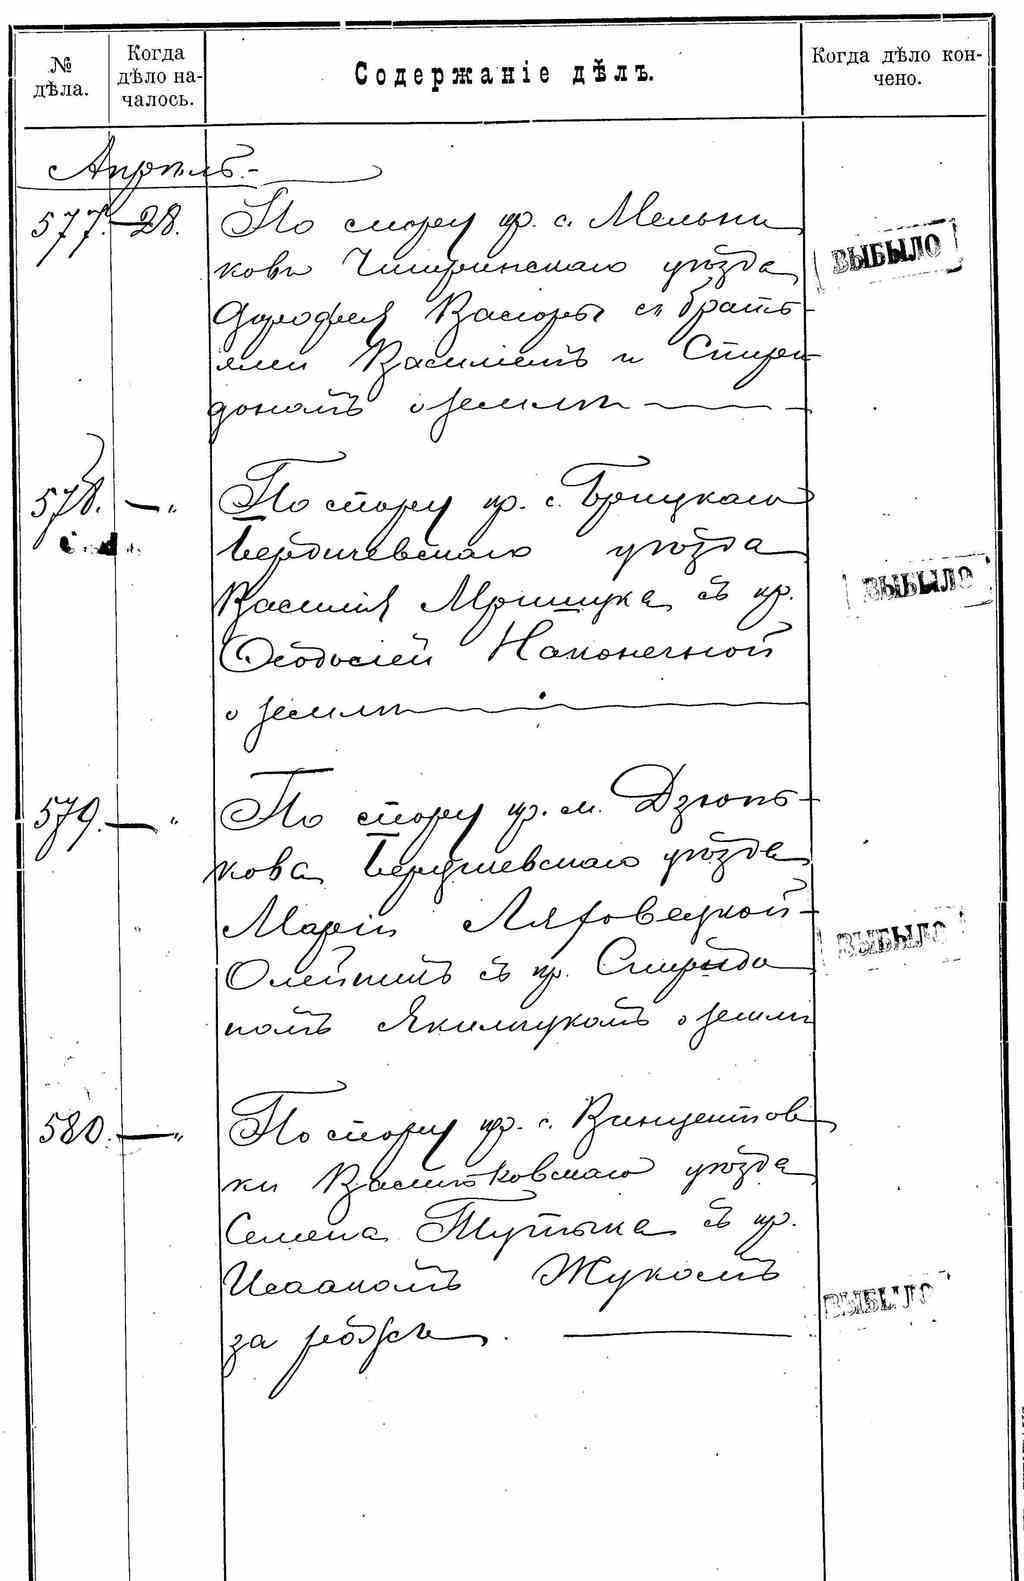 № дѣла.
Когда дѣло началось.
Содержаніе дѣлъ.
Когда дѣло кончено.
Апрѣль.
577. 28. По спору кр. с. Мельни
ковъ Чигиринскаго уѣзда
Дорофея Вастры съ брать-
ями Василіемъ и Спири-
дономъ о землѣ
ВЫБЫЛО
578. — „ По спору кр. с. Брицкаго
Бердичевскаго уѣзда
Василія Мришука съ кр.
Ѳеодосіей Наконечной
о землѣ
ВЫБЫЛО
579. — „ По спору кр. м. Дзюнь-
кова Бердичевскаго уѣзда
Маріи Ляховецкой-
Олейникъ съ кр. Спиридо
номъ Якимчукомъ о землѣ
ВЫБЫЛО
580. — „ По спору кр. с. Винцентов
ки Васильковскаго уѣзда
Семена съ кр.
Исаакомъ Жукомъ
за рожь.
ВЫБЫЛО